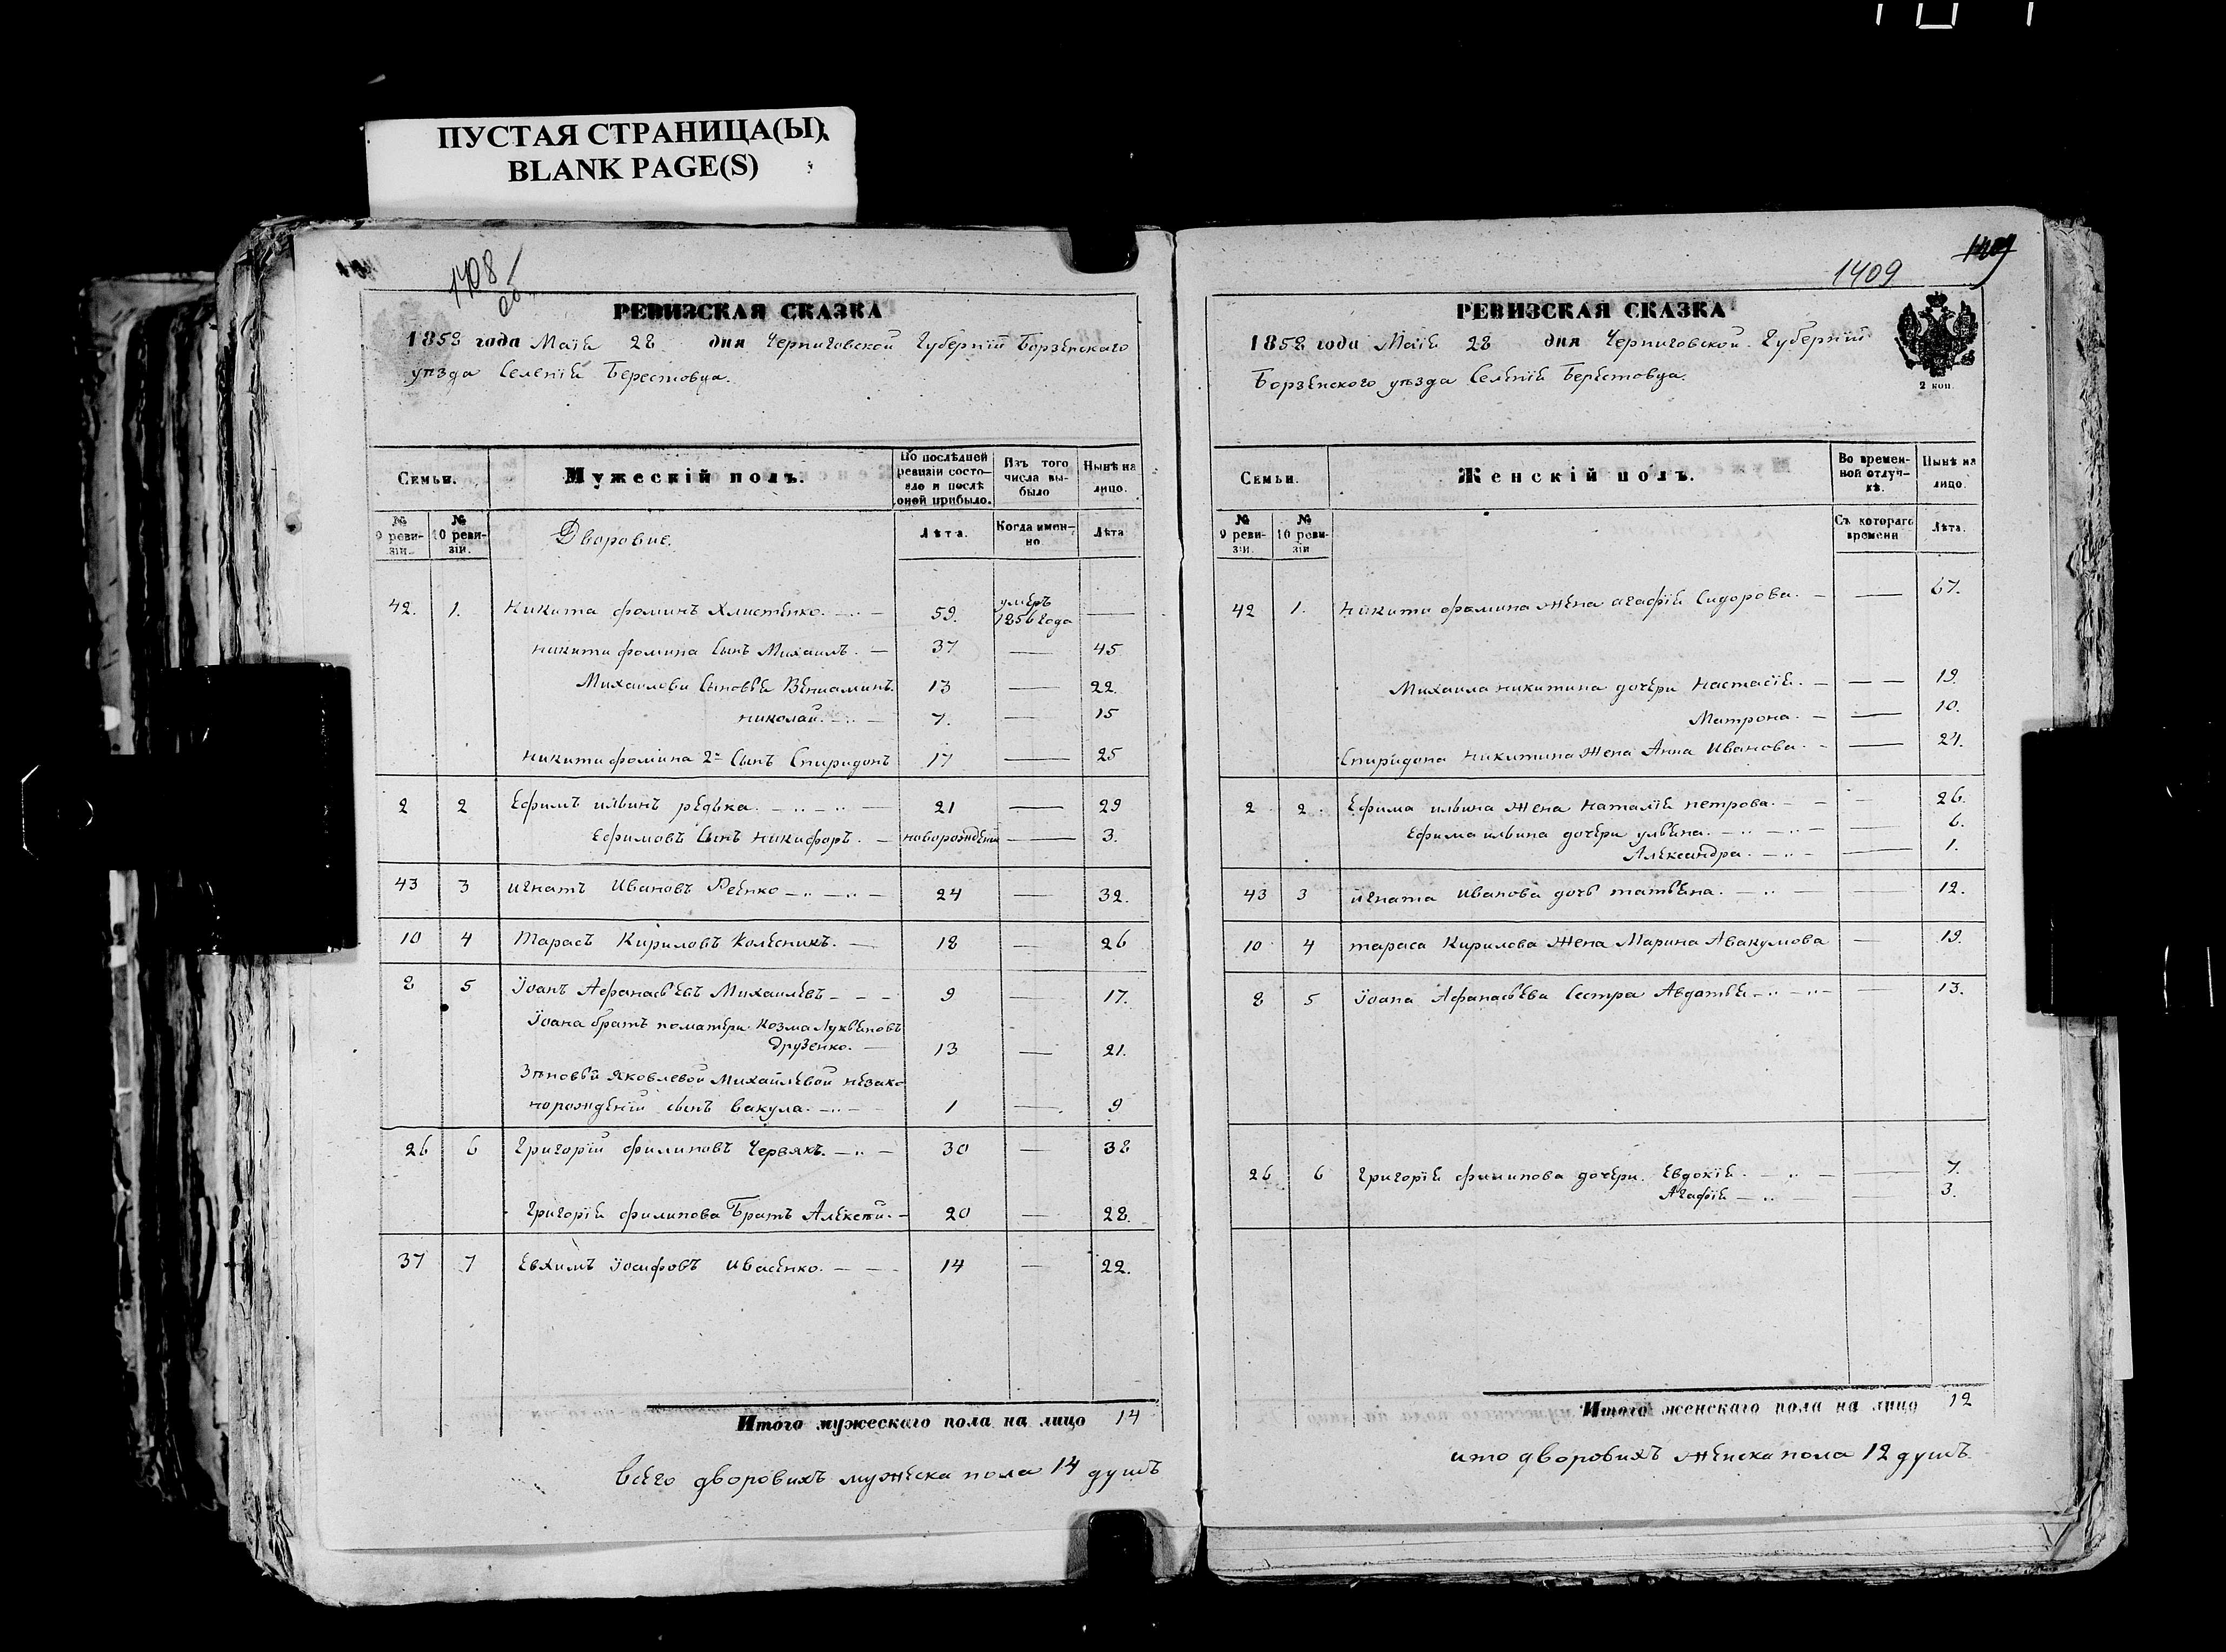 ПУСТАЯ СТРАНИЦА(Ы)
BLANK PAGE(S)
1408 об
РЕВИЗСКАЯ СКАЗКА
1858 года Маія 28 дня Черниговской Губерніи Борзенскаго
уѣзда Селенія Берестовца.
Семьи. Мужескій полъ. По послѣдней ревизіи состояло и послѣ оной прибыло. Изъ того числа выбыло Нынѣ на лицо.
№ 9 ревизіи. № 10 ревизіи. Дворовые. Лѣта. Когда именно Лѣта
42. 1. Никита Фоминъ Хлистенко. 59. умеръ 1856 года —
Никити Фомина Сынъ Михаилъ. — 37 — 45
Михаилови Сыновья Веніаминъ. 13 — 22.
Николай. 7. — 15
Никити Фомина 2й Сынъ Спиридонъ 17 — 25
2 2 Ефимъ Ильинъ редька. 21 — 29
Ефимовъ Сынъ Никифоръ. — новорожденій — 3.
43 3 Игнатъ Ивановъ Реенко 24 — 32.
10 4 Тарасъ Кириловъ Колесникъ. — 18 — 26
8 5 Іоанъ Афанасьевъ Михаилевъ - - - 9 — 17.
Іоана братъ поматери Козма Лукьяновъ
Друзенко. — 13 — 21.
Зѣновьи Яковлевой Михайлевой незако
норожденій сынъ Вакула. 1 — 9
26 6 Григорій Филиповъ Червякъ. 30 — 38
Григорія Филипова Братъ Алексѣй. - 20 — 28.
37 7 Евхимъ Іосифовъ Ивасенко. 14 — 22.
Итого мужескаго пола на лицо 14
Всего дворовихъ мужеска пола 14 душъ
1409
1409
РЕВИЗСКАЯ СКАЗКА
1858 года Маія 28 дня Черниговской Губерніи
Борзенского уѣзда Селенія Берестовца.
2 коп
Семьи. Женскій полъ. Во временной отлучкѣ. Нынѣ на лицо.
№ 9 ревизіи. № 10 ревизіи Съ котораго времени Лѣта.
42 1. Никити Фомина жена Агафія Сидорова. — 67.
Михаила Никитина дочери Настасія. — 19.
Матрона. — 10.
Спиридона Никитина жена Анна Иванова. — 24.
2 2. Ефима Ильина жена Наталія Петрова. — 26.
Ефима Ильина дочери Ульяна. — 6.
Александра. — 1.
43 3 Игната Иванова дочь татьяна. — 12.
10 4 тараса Кирилова жена Марина Авакумова — 19.
8 5 Іоана Афанасьева Сестра Авдотья — 13.
26 6 Григорія Филипова дочери. Евдокія. — 7.
Агафія — 3.
Итого женскаго пола на лицо 12
итого дворовихъ женска пола 12 душъ.